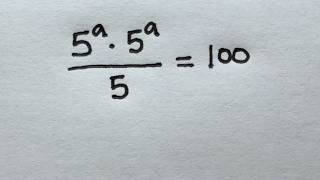 5^a · 5^a
5
= 100